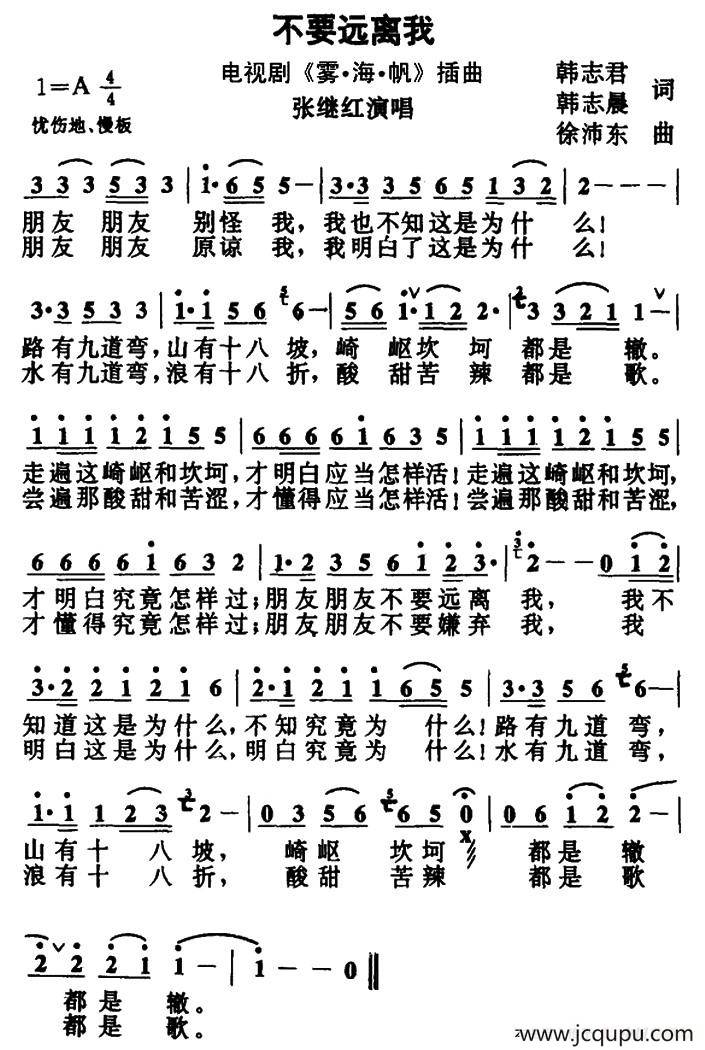 不要远离我
电视剧《雾·海·帆》插曲
1=A 4/4
忧伤地、慢板
张继红演唱
韩志君
韩志晨 词
徐沛东 曲
3 3 3 5 3 3 3 | 1· 6 5 5 – | 3·3 3 5 6 5 1 3 2 | 2 – – – |
朋友 朋友 别怪 我，我也不知这是为什 么！
朋友 朋友 原谅 我，我明白了这是为什 么！
3·3 5 3 3 | 1·1 5 6 6 – | 5 6 1·1 2 2· | 3 3 2 1 1 – |
路有九道弯，山有十八坡，崎 岖坎 坷 都是 辙。
水有九道弯，浪有十八折，酸 甜苦 辣 都是 歌。
1 1 1 1 1 2 1 5 5 | 6 6 6 6 6 1 6 3 5 | 1 1 1 1 1 2 1 5 5 |
走遍这崎岖和坎坷，才明白应当怎样活！走遍这崎岖和坎坷，
尝遍那酸甜和苦涩，才懂得应当怎样活！尝遍那酸甜和苦涩，
6 6 6 6 6 1 6 3 2 | 1·2 3 5 6 1 2 3· | 3 2 – – 0 1 2 |
才明白究竟怎样过；朋友朋友不要远离 我， 我不
才懂得究竟怎样过；朋友朋友不要嫌弃 我， 我
3·2 2 1 2 1 6 | 2·1 2 1 1 6 5 5 | 3·3 5 6 5 6 – |
知道这是为什么，不知究竟为 什么！路有九道 弯，
明白这是为什么，明白究竟为 什么！水有九道 弯，
1·1 1 2 3 3 2 – | 0 3 5 6 5 6 5 0 | 0 6 1 2 2 – |
山有十 八 坡， 崎岖 坎坷 都是 辙
浪有十 八 折， 酸甜 苦辣 都是 歌
2 2 2 1 1 – | 1 – – 0 ‖
都是 辙。
都是 歌。
www.jcqupu.com